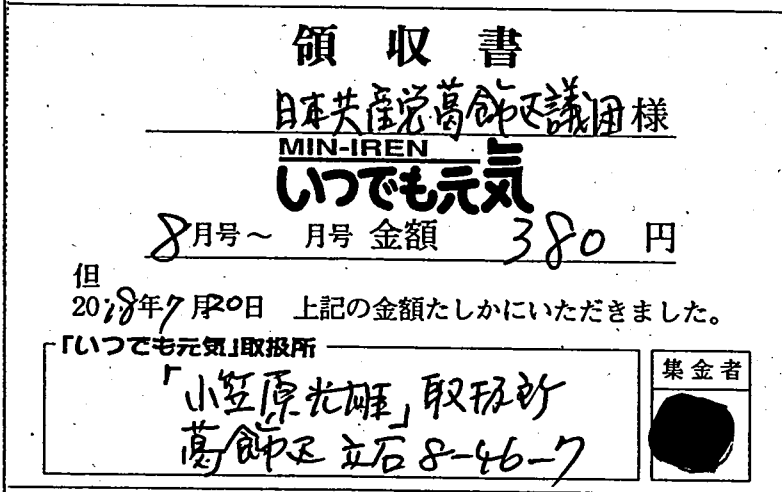 領収書
日本共産党葛飾区議団様
MIN-IREN
いつでも元気
8月号～ 月号 金額 380 円
但
2018年7月20日 上記の金額たしかにいただきました。
「いつでも元気」取扱所
集金者
「小笠原光雄」取扱所
葛飾区立石8-46-7